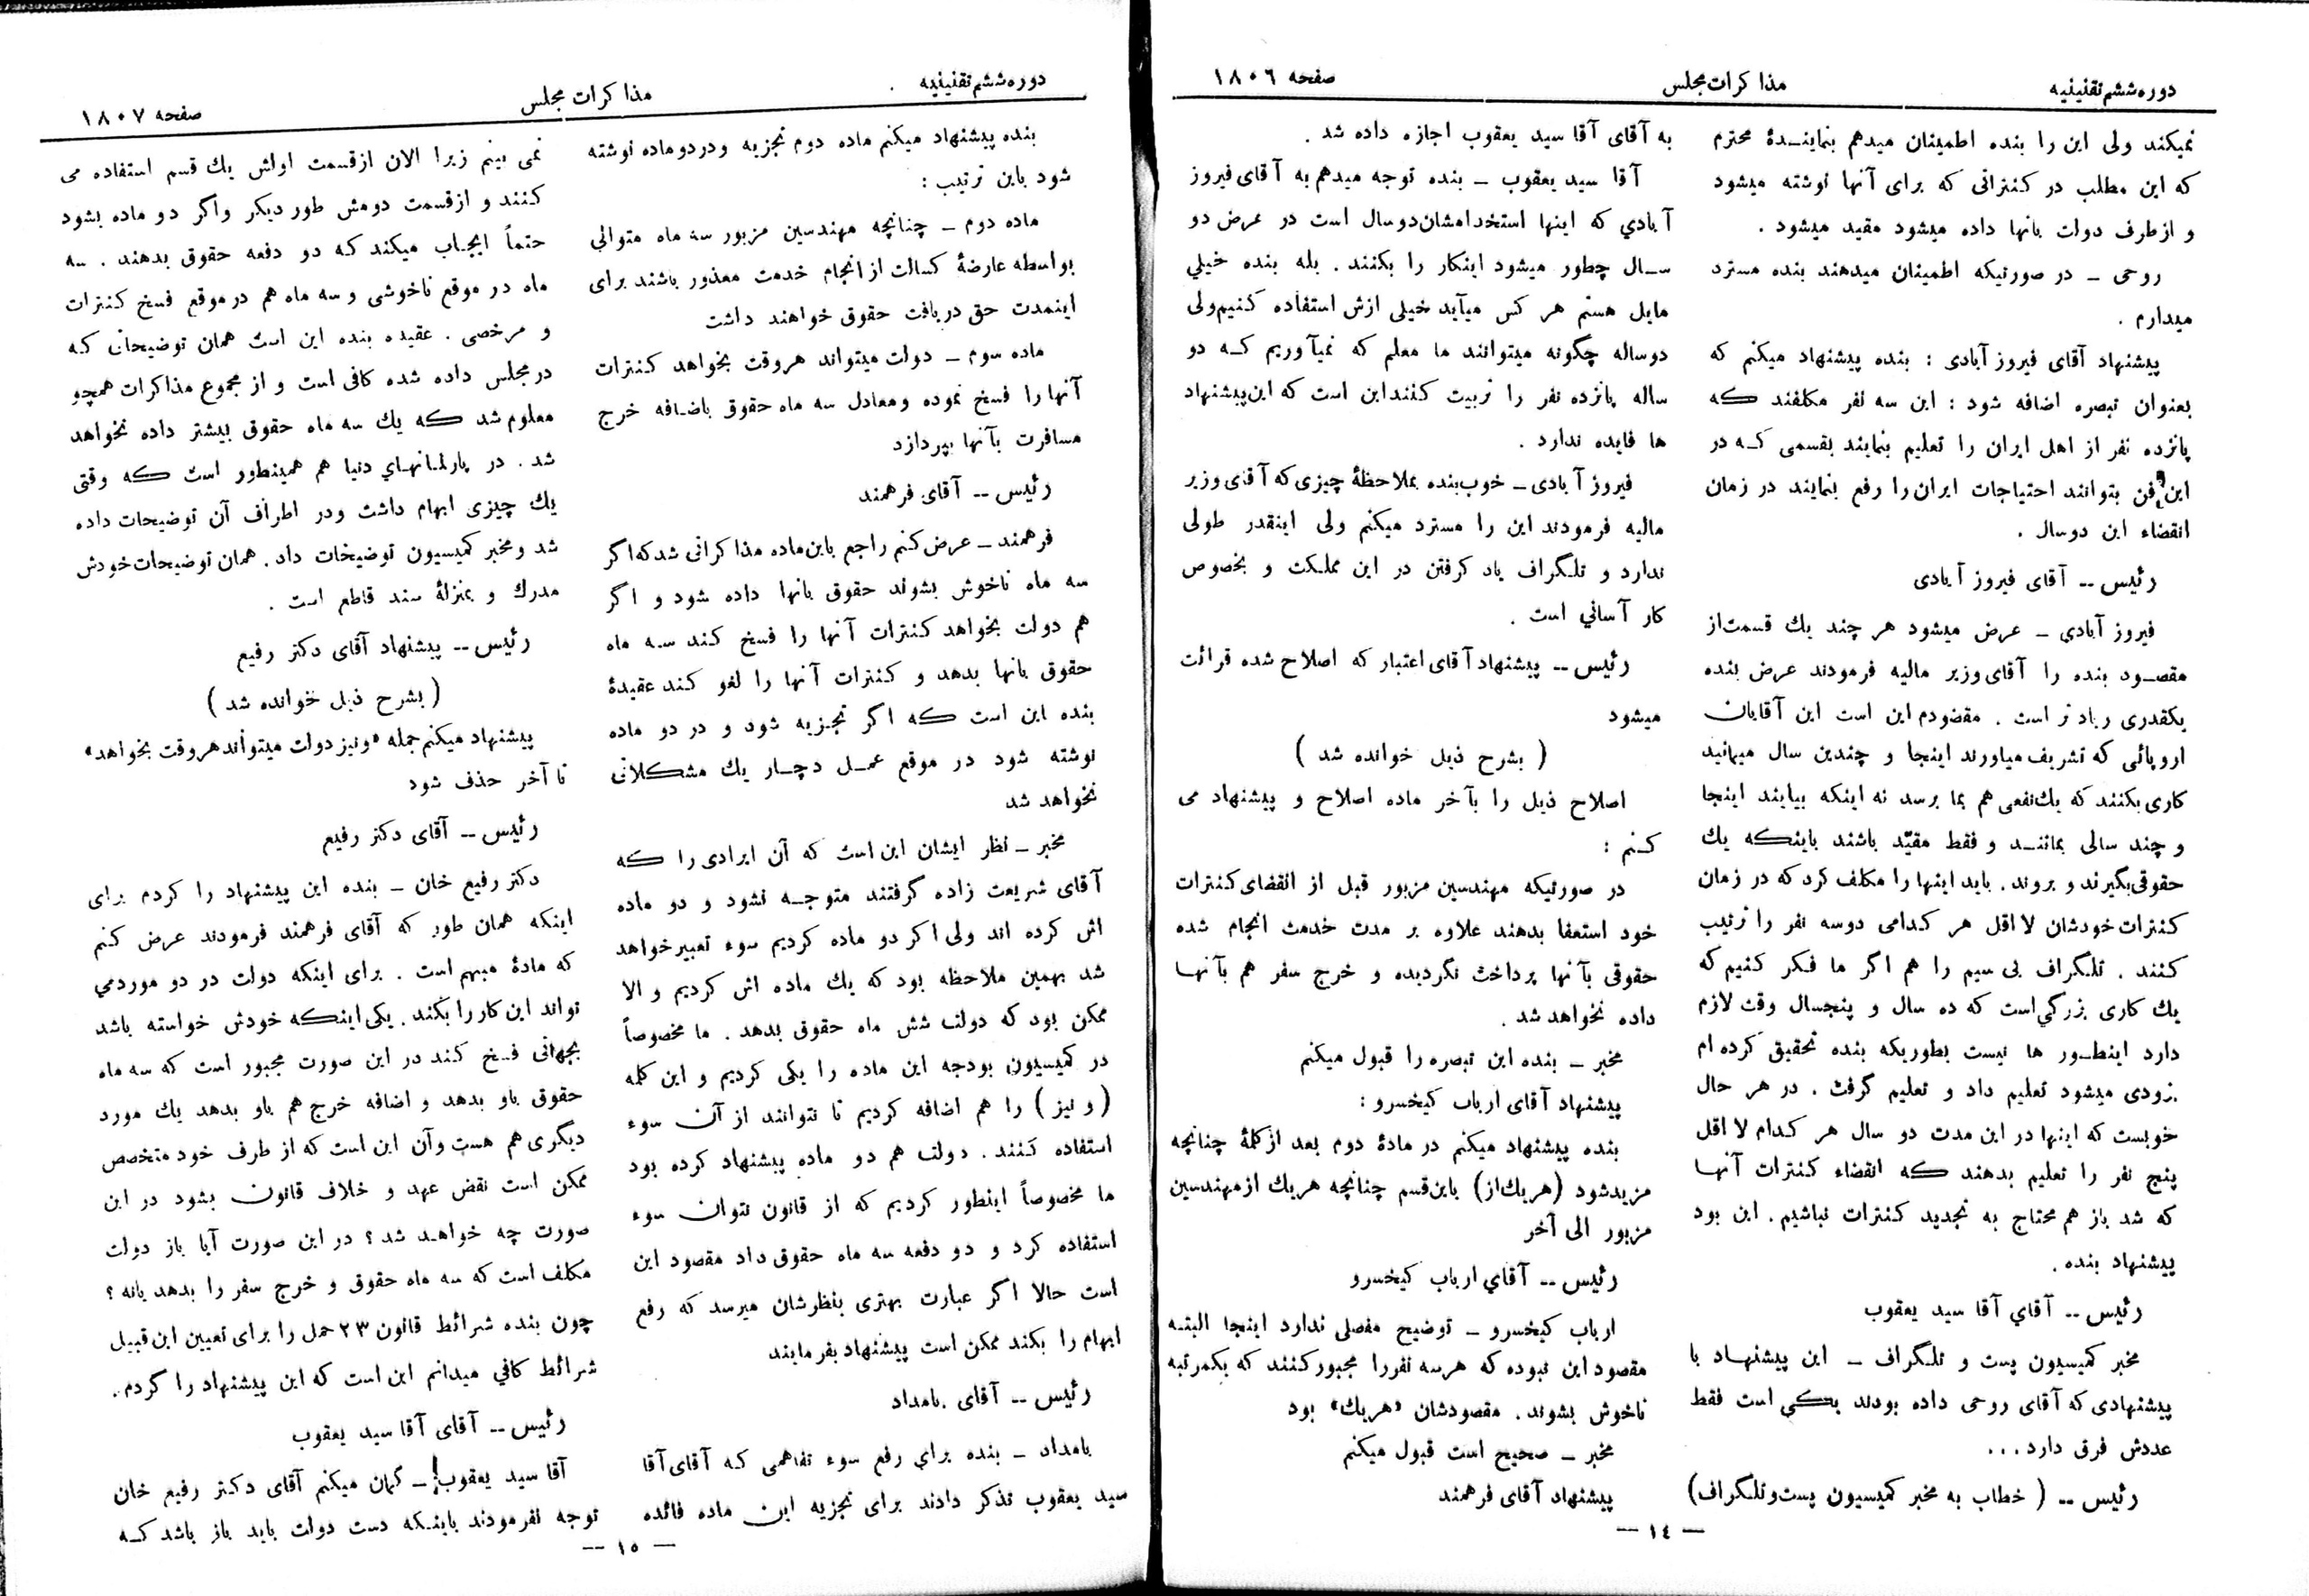 دوره ششم تقنینیه
مذاکرات مجلس
صفحه ۱۸۰۶
نمیکند ولی این را بنده اطمینان میدهم بنماینـدهٔ محترم
که این مطلب در کنتراتی که برای آنها نوشته میشود
و از طرف دولت بانها داده میشود مقید میشود .
روحی ـ در صورتیکه اطمینان میدهند بنده مسترد
میدارم .
پیشنهاد آقای فیروز آبادی : بنده پیشنهاد میکنم که
بعنوان تبصره اضافه شود : این سه نفر مکلفند که
پانزده نفر از اهل ایران را تعلیم بنمایند بقسمی کـه در
این فن بتوانند احتیاجات ایران را رفع بنمایند در زمان
انقضاء این دوسال .
رئیس ــ آقای فیروز آبادی
فیروز آبادی ـ عرض میشود هر چند یك قسمت از
مقصـود بنده را آقای وزیر مالیه فرمودند عرض بنده
یکقدری زیاد تر است . مقضودم این است این آقایان
اروپائی که تشریف میاورند اینجا و چندین سال میمانید
کاری بکنند که یك نفعی هم بما برسد نه اینکه بیایند اینجا
و چند سالی بماننـد و فقط مقیّد باشند باینکه یك
حقوقی بگیرند و بروند . باید اینها را مکلف کرد که در زمان
کنترات خودشان لا اقل هر کدامی دوسه نفر را ترتیب
کـنند . تلـگراف بی سیم را هم اگر ما فکر کنیم که
یك کاری بزرگی است که ده سال و پنجسال وقت لازم
دارد اینطـور ها نیست بطوریکه بنده تحقیق کرده ام
بزودی میشود تعلیم داد و تعلیم گرفت . در هر حال
خوبست که اینها در این مدت دو سال هر کدام لا اقل
پنج نفر را تعلیم بدهند که انقضاء کنترات آنهـا
که شد باز هم محتاج به تجدید کنترات نباشیم . این بود
پیشنهاد بنده .
رئیس ــ آقاي آقا سید یعقوب
مخبر کمیسیون پست و تلـگراف ـ این پیشنهـاد با
پیشنهادی که آقای روحی داده بودند یکي است فقط
عددش فرق دارد...
رئیس ــ ( خطاب به مخبر کمیسیون پست و تلگراف)
به آقای آقا سید یعقوب اجازه داده شد .
آقا سید یعقوب ـ بنده توجه میدهم به آقای فیروز
آبادي که اینها استخدامشان دوسال است در عرض دو
سـال چطور میشود اینکار را بکنند . بله بنده خیلي
مایل هستم هر کس میآید خیلی ازش استفاده کنیم ولی
دوساله چگونه میتوانند ما معلم که نمیآوریم کـه دو
ساله پانزده نفر را تربیت کنند این است که این پیشنهاد
ها فایده ندارد .
فیروز آبادی ـ خوب بنده بملاحظهٔ چیزی که آقای وزیر
مالیه فرمودند این را مسترد میکنم ولی اینقدر طولی
ندارد و تلـگراف یاد کرفتن در این مملـکت و بخصوص
کار آساني است .
رئیس ــ پیشنهاد آقای اعتبار که اصلاح شده قرائت
میشود
( بشرح ذیل خوانده شد )
اصلاح ذیل را بآخر ماده اصلاح و پیشنهاد می
کـنم :
در صورتیکه مهندسین مزبور قبل از انقضای کنترات
خود استعفا بدهند علاوه بر مدت خدمت انجام شده
حقوقی بآنها پرداخت نگردیده و خرج سفر هم بآنهـا
داده نخواهد شد .
مخبر ـ بنده این تبصره را قبول میکنم
پیشنهاد آقای ارباب کیخسرو :
بنده پیشنهاد میکنم در مادهٔ دوم بعد از کلمهٔ چنانچه
مزید شود (هریك از) باین قسم چنانچه هریك از مهندسین
مزبور الی آخر
رئیس ــ آقاي ارباب کیخسرو
ارباب کیخسرو ـ توضیح مفصلی ندارد اینجا البتـه
مقصود این نبوده که هر سه نفر را مجبور کنند که یکمرتبه
ناخوش بشوند . مقصودشان «هریك» بود
مخبر ـ صحیح است قبول میکنم
پیشنهاد آقای فرهمند
— ١٤ —
دوره ششم تقنینیه
مذاکرات مجلس
صفحه ۱۸۰۷
بنده پیشنهاد میکنم ماده دوم تجزیه ودر دو ماده نوشته
شود باین ترتیب :
ماده دوم ـ چنانچه مهندسین مزبور سه ماه متوالی
بواسطه عارضهٔ کسالت از انجام خدمت معذور باشند برای
اینمدت حق دریافت حقوق خواهند داشت
ماده سوم ـ دولت میتواند هروقت بخواهد کنترات
آنها را فسخ نموده ومعادل سه ماه حقوق باضـافه خرج
مسافرت بآنها بپردازد
رئیس ــ آقای فرهمند
فرهمند ـ عرض کنم راجع باین ماده مذاکراتی شد که اگر
سه ماه ناخوش بشوند حقوق بانها داده شود و اگر
هم دولت بخواهد کنترات آنها را فسخ کند سه ماه
حقوق بانها بدهد و کنترات آنها را لغو کند عقیدهٔ
بنده این است که اگر تجـزیه شود و در دو ماده
نوشته شود در موقع عمـل دچـار یك مشکلاتی
نخواهد شد
مخبر ـ نظر ایشان این است که آن ایرادی را که
آقای شریعت زاده گرفتند متوجـه نشود و دو ماده
اش کرده اند ولی اکر دو ماده کردیم سوء تعبیر خواهد
شد بهمین ملاحظه بود که یك ماده اش کردیم و الا
ممکن بود که دولت شش ماه حقوق بدهد . ما مخصوصاً
در کمیسیون بودجه این ماده را یکی کردیم و این کلمه
( و نیز ) را هم اضافه کردیم تا نتوانند از آن سوء
استفاده کنند . دولت هم دو ماده پیشنهاد کرده بود
ما مخصوصاً اینطور کردیم که از قانون نتوان سوء
استفاده کرد و دو دفعه سه ماه حقوق داد مقصود این
است حالا اگر عبارت بهتری بنظرشان میرسد که رفع
ابهام را بکند ممکن است پیشنهاد بفرمایند
رئیس ــ آقای بامداد
بامداد ـ بنده براي رفع سوء تفاهمی که آقای آقا
سید یعقوب تذکر دادند برای تجزیه این ماده فائده
نمی بینم زیرا الان از قسمت اولش یك قسم استفاده می
کنند و از قسمت دومش طور دیکر واگر دو ماده بشود
حتماً ایجـاب میکند کـه دو دفعه حقوق بدهند . سه
ماه در موقع ناخوشی و سه ماه هم در موقع فسخ کنترات
و مرخصی . عقیده بنده این است همان توضیحاتی کـه
در مجلس داده شده کافی است و از مجموع مذاکرات همچو
معلوم شد که یك سه ماه حقوق بیشتر داده نخواهد
شد . در پارلمانهـاي دنیا هم همینطور است که وقتی
یك چیزی ابهام داشت ودر اطراف آن توضیحات داده
شد و مخبر کمیسیون توضیحات داد . همان توضیحات خودش
مدرك و بمنزلهٔ سند قاطع است .
رئیس ــ پیشنهاد آقای دکتر رفیع
( بشرح ذیل خوانده شد )
پیشنهاد میکنم جمله «ونیز دولت میتواند هروقت بخواهد»
تا آخر حذف شود
رئیس ــ آقای دکتر رفیع
دکتر رفیع خان ـ بنده این پیشنهاد را کردم برای
اینکه همان طور که آقای فرهمند فرمودند عرض کنم
که مادهٔ مبهم است . برای اینکه دولت در دو مورد می
تواند این کار را بکند . یکی اینکه خودش خواسته باشد
بجهاتی فسخ کند در این صورت مجبور است که سه ماه
حقوق باو بدهد و اضافه خرج هم باو بدهد یك مورد
دیگری هم هست وآن این است که از طرف خود متخصص
ممکن است نقض عهد و خلاف قانون بشود در این
صورت چه خواهـد شد ؟ در این صورت آیا باز دولت
مکلف است که سه ماه حقوق و خرج سفر را بدهد یانه ؟
چون بنده شرائط قانون ۲۳ حمل را برای تعیین این قبیل
شرائط کافي میدانم این است که این پیشنهاد را کردم .
رئیس ــ آقای آقا سید یعقوب
آقا سید یعقوب ـ گمان میکنم آقای دکتر رفیع خان
توجه نفرمودند باینـکه دست دولت باید باز باشد کـه
— ١٥ —